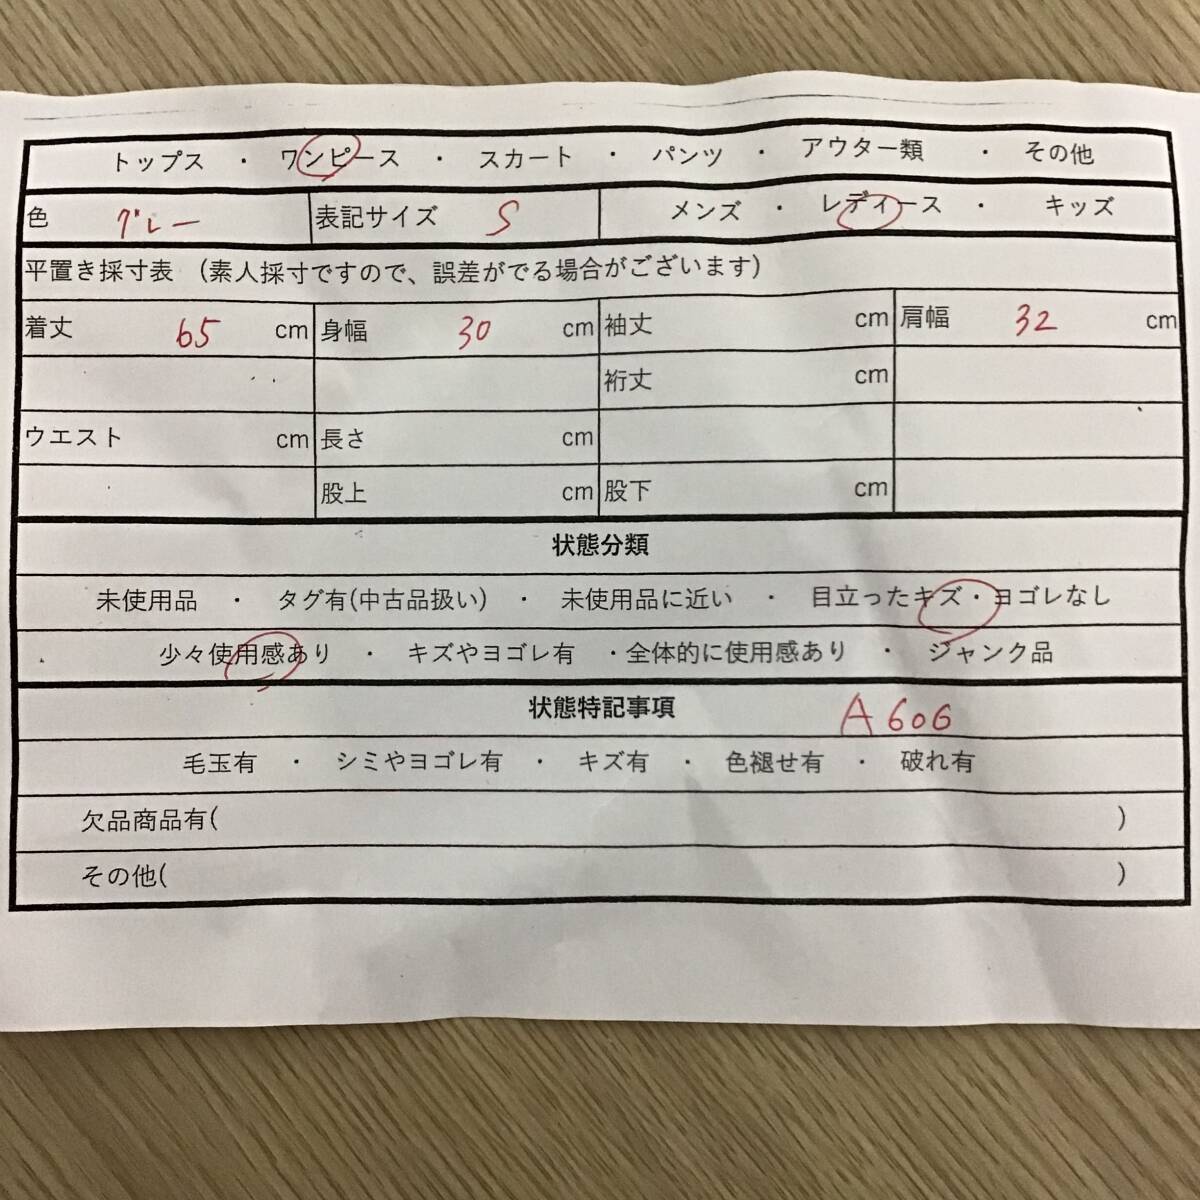 トップス ・ ワンピース ・ スカート ・ パンツ ・ アウター類 ・ その他
色 グレー 表記サイズ S メンズ ・ レディース ・ キッズ
平置き採寸表 (素人採寸ですので、誤差がでる場合がございます)
着丈 65 cm 身幅 30 cm 袖丈 cm 肩幅 32 cm
裄丈 cm
ウエスト cm 長さ cm
股上 cm 股下 cm
状態分類
未使用品 ・ タグ有(中古品扱い) ・ 未使用品に近い ・ 目立ったキズ・ヨゴレなし
少々使用感あり ・ キズやヨゴレ有 ・全体的に使用感あり ・ ジャンク品
状態特記事項 A606
毛玉有 ・ シミやヨゴレ有 ・ キズ有 ・ 色褪せ有 ・ 破れ有
欠品商品有( )
その他( )